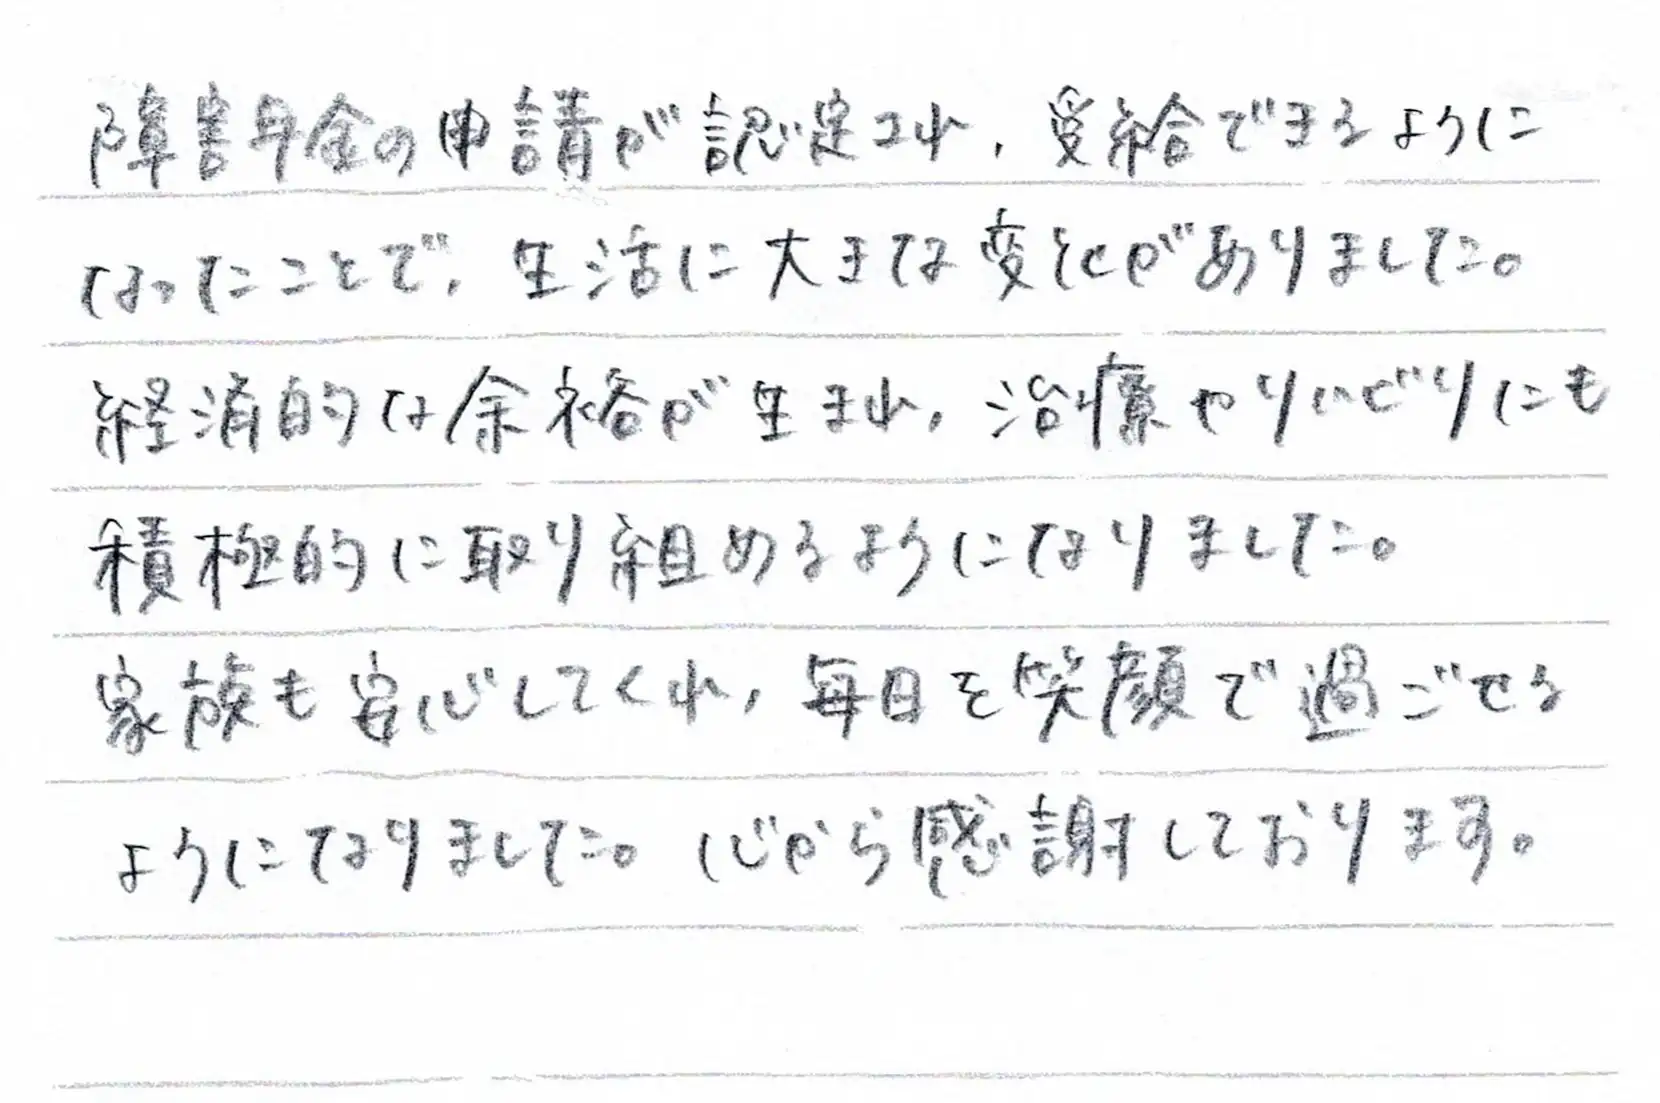 障害年金の申請が認定され、受給できるように
なったことで、生活に大きな変化がありました。
経済的な余裕が生まれ、治療やリハビリにも
積極的に取り組めるようになりました。
家族も安心してくれ、毎日を笑顔で過ごせる
ようになりました。心から感謝しております。